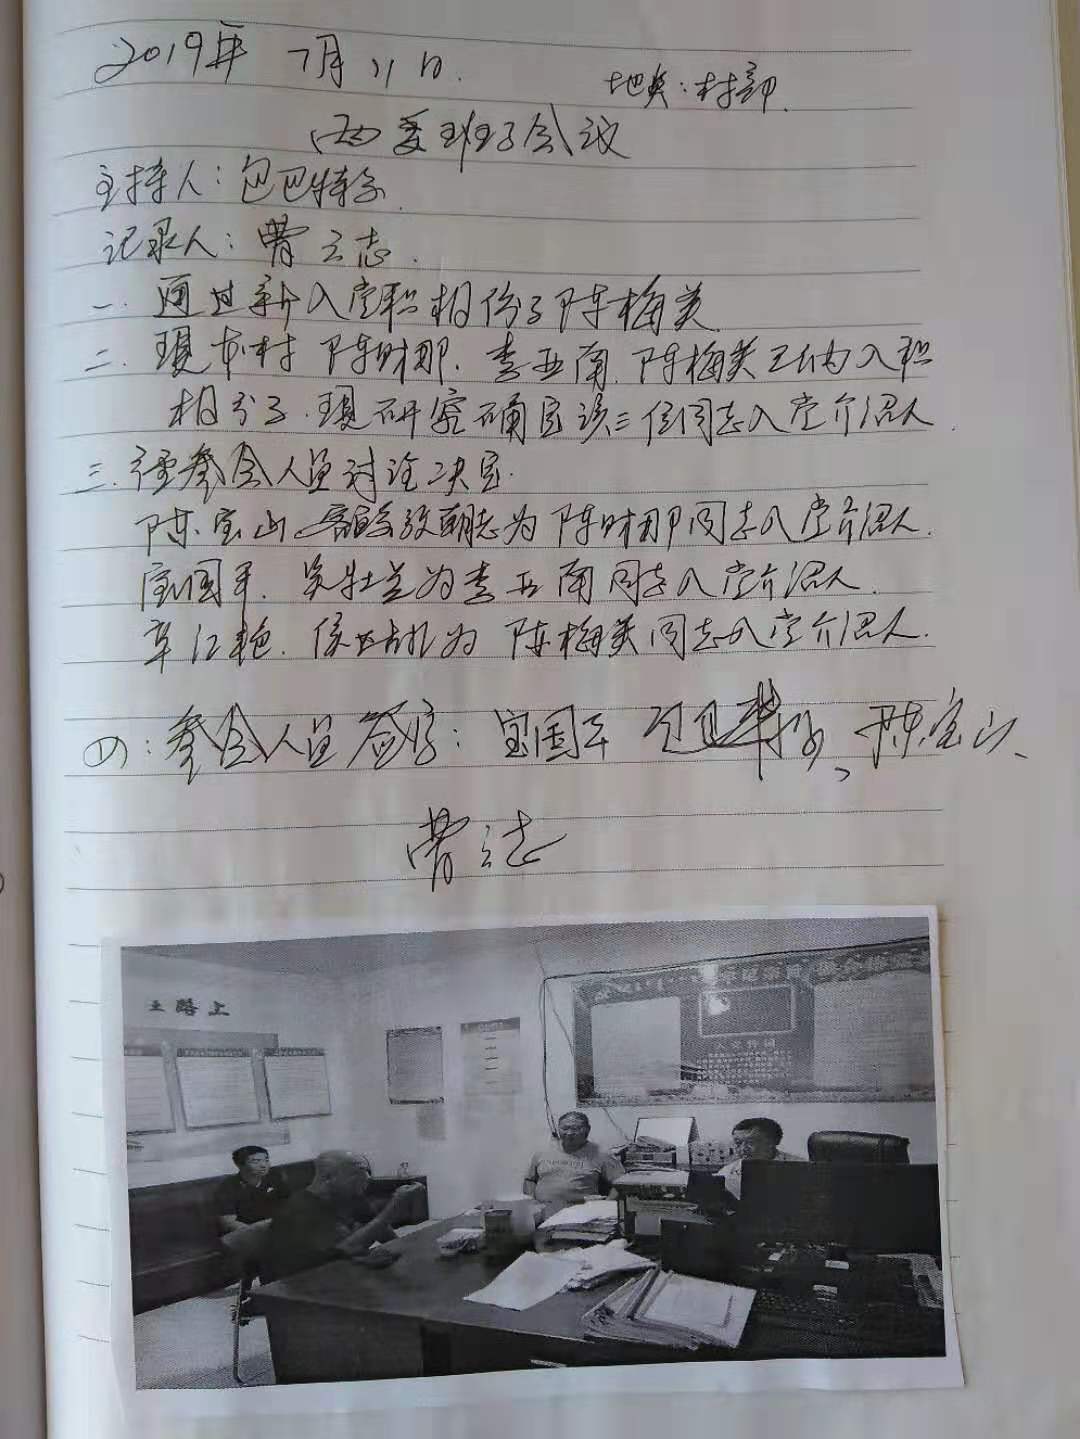 2019年 7月11日.
地点:村部.
两委班子会议
主持人:包巴特尔.
记录人:曹云志.
一.通过新入党积极份子陈梅英.
二.现本村 陈财那.李亚南.陈梅英已纳入积
极分子.现研究确定该三位同志入党介绍人.
三.经参会人员讨论决定.
陈宝山 敖朝志为陈财那同志入党介绍人.
宝国军.吴牡兰为李亚南同志入党介绍人.
辛江艳. 为 陈梅英同志入党介绍人.
四:参会人员签字:宝国军 陈宝山、
曹云志
主路上
入党誓词